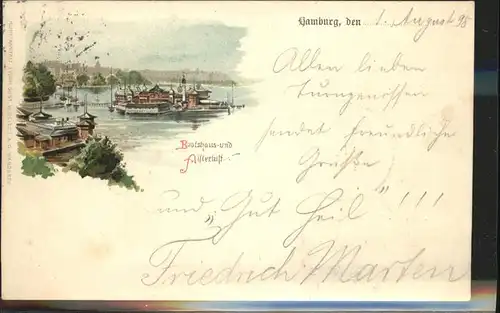 Hamburg, den 1. August 98
Allen lieben
Turngenossen
sendet freundliche
Grüße
und „Gut Heil" !!!
Friedrich Marten
Alsterlust.